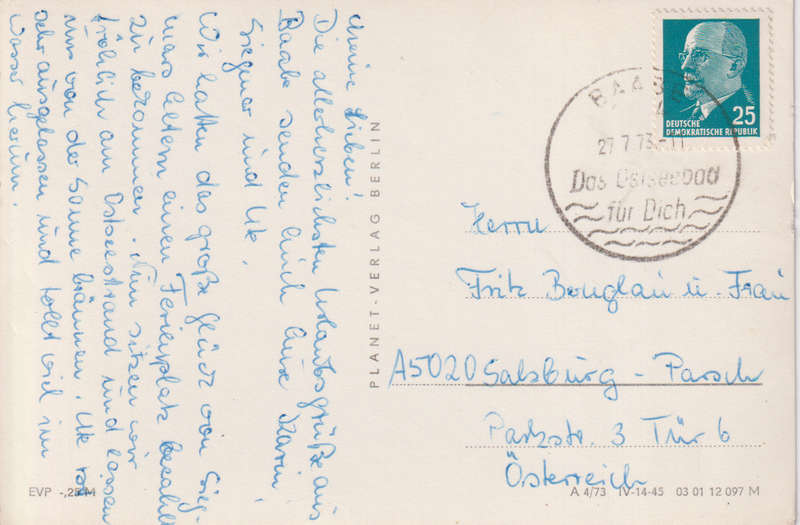 Meine Lieben!
Die allerherzlichsten Urlaubsgrüße aus
Baabe senden Euch Eure Karin,
Siegmar und Ute.
Wir hatten das große Glück von Sieg-
mars Eltern einen Ferienplatz bezahlt
zu bekommen. Nun sitzen wir
fröhlich am Ostseestrand und lassen
uns von der Sonne bräunen. Ute ist
sehr ausgelassen und tollt viel im
Wasser herum.
PLANET-VERLAG BERLIN
EVP -,25 M
25
DEUTSCHE
DEMOKRATISCHE REPUBLIK
BAABE
27.7.73-11
Das Ostseebad
für Dich
Herrn
Fritz u. Frau
A5020 Salzburg - Parsch
Parkstr. 3 Tür 6
Österreich
A 4/73 IV-14-45 03 01 12 097 M